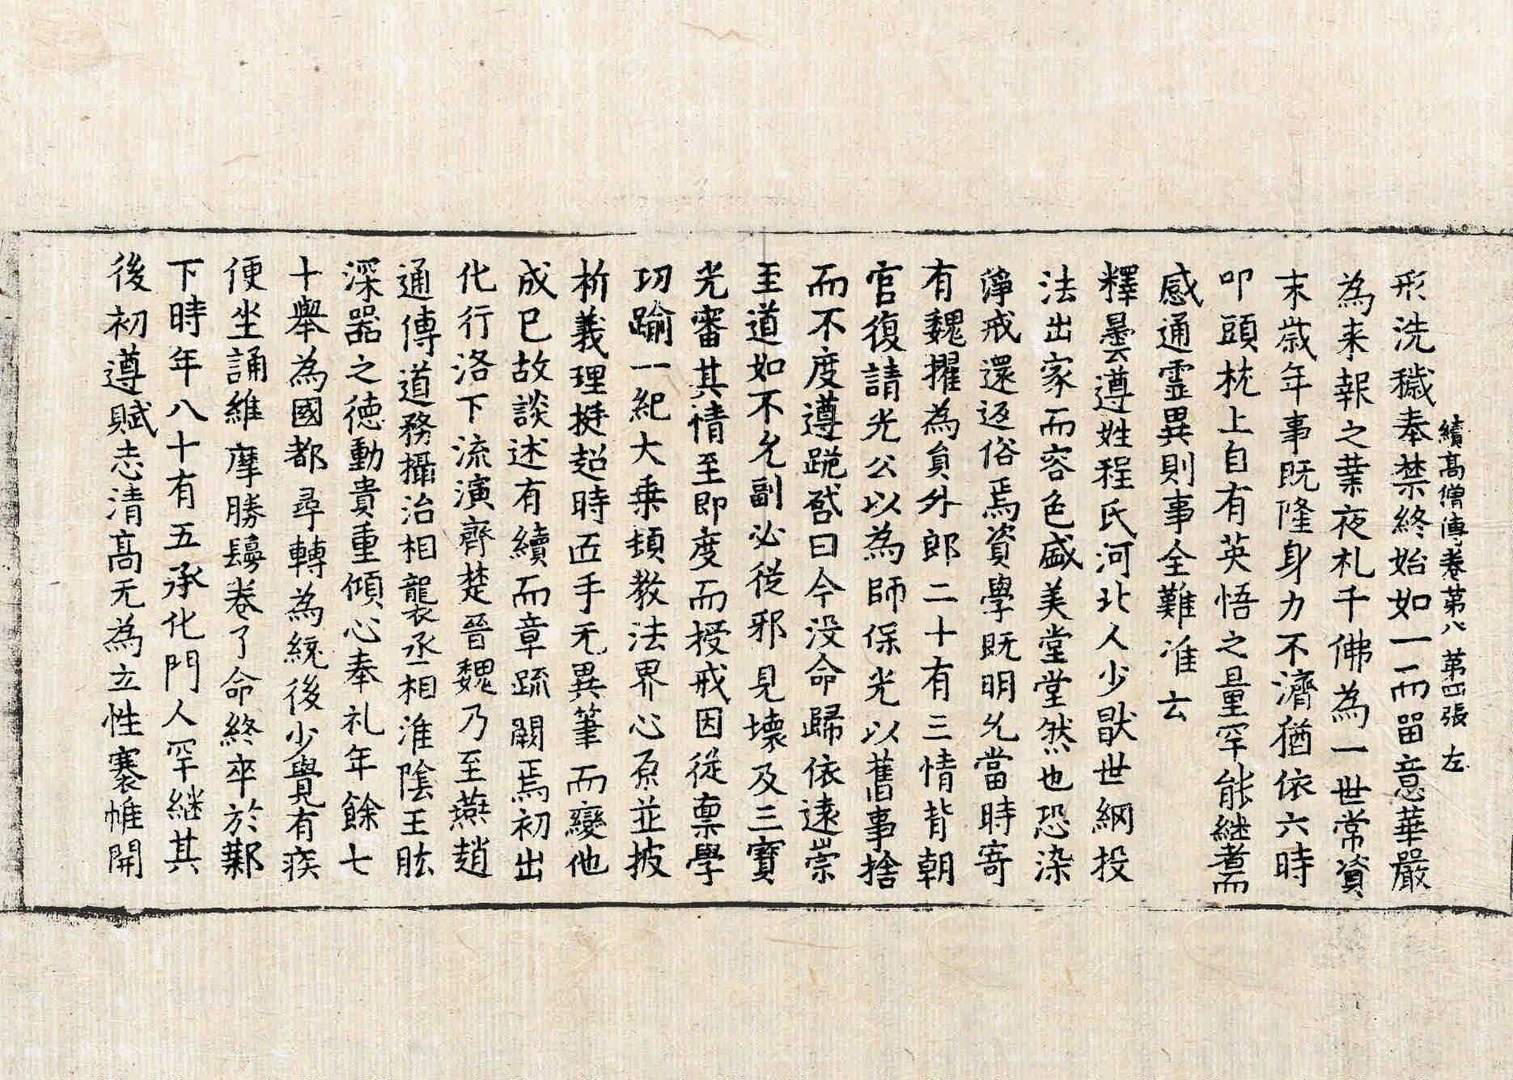 續高僧傳卷第八 第四張 左
形洗穢奉禁終始如一而留意華嚴
為来報之業夜礼千佛為一世常資
末歲年事既隆身力不濟猶依六時
叩頭枕上自有英悟之量罕能継者而
感通霊異則事全難准云
釋曇遵姓程氏河北人少猒世網投
法出家而容色盛美堂堂然也恐染
淨戒還返俗焉資學既明允當時寄
有魏擢為負外郎二十有三情背朝
官復請光公以為師保光以舊事捨
而不度遵跪啓曰今没命歸依遠崇
至道如不允副必従邪見壊及三寳
光審其情至即度而授戒因従禀學
功踰一紀大乗頓教法界心原並披
析義理挺超時匠手无異筆而變他
成已故談述有續而章疏闕焉初出
化行洛下流演齊楚晉魏乃至燕趙
通傳道務攝治相襲丞相淮陰王肱
深器之徳動貴重傾心奉礼年餘七
十舉為國都尋轉為統後少覺有疾
便坐誦維摩勝鬘卷了命終卒於鄴
下時年八十有五承化門人罕継其
後初遵賦志清髙无為立性褰帷開